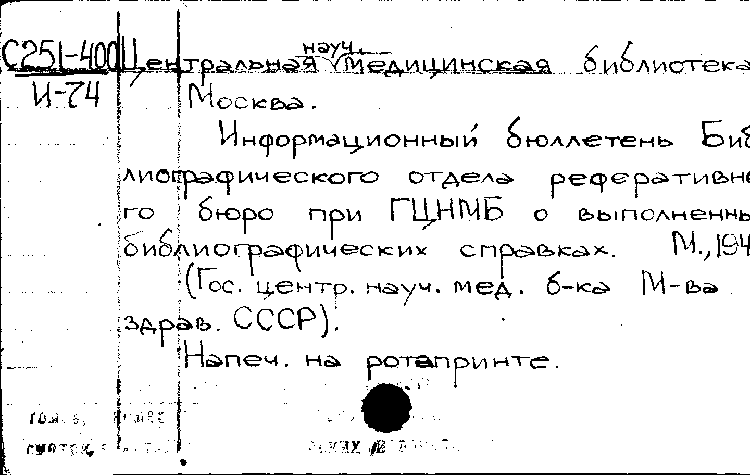 С251-400 Центральная науч. медицинская библиотека
И-74 Москва.
Информационный бюллетень Биб
лиографического отдела реферативне
го бюро при ГЦНМБ о выполненны
библиографических справках. М., 194
(Гос. центр. науч. мед. б-ка М-ва
здрав. СССР).
Напеч. на ротапринте.